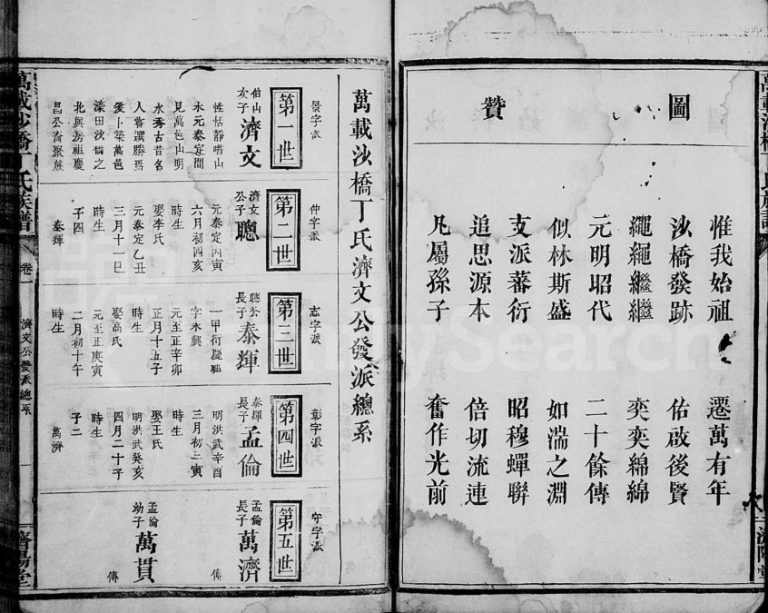 圖
贊
惟我始祖 遷萬有年
沙橋發跡 佑啟後賢
繩繩繼繼 奕奕綿綿
元明昭代 二十餘傳
似林斯盛 如湍之淵
支派蕃衍 昭穆蟬聯
追思源本 倍切流連
凡屬孫子 奮作光前
萬載沙橋丁氏濟文公發派總系
景字派
第一世
伯山
次子
濟文
性恬靜嗜山
水元泰定間
見萬邑山明
水秀古昔名
人嘗選勝焉
爰卜築萬邑
北與房祖慶
昌公齊聚族
仲字派
第二世
濟文
公子
聰
元泰定丙寅
六月初四亥
時生
娶李氏
元泰定乙丑
三月十一巳
時生
子四
泰輝
志字派
第三世
聰公
長子
泰輝
一甲衍疑祖
字永興
元至正辛卯
正月十五子
時生
娶高氏
元至正庚寅
二月初十午
時生
彰字派
第四世
泰輝
長子
孟倫
明洪武辛酉
三月初三寅
時生
娶王氏
明洪武癸亥
四月二十子
時生
子二
萬濟
守字派
第五世
孟倫
長子
萬濟
傳
孟倫
幼子
萬貫
傳
萬載沙橋丁氏族譜
卷一
濟文公發派總系
一
濟陽堂
FamilySearch